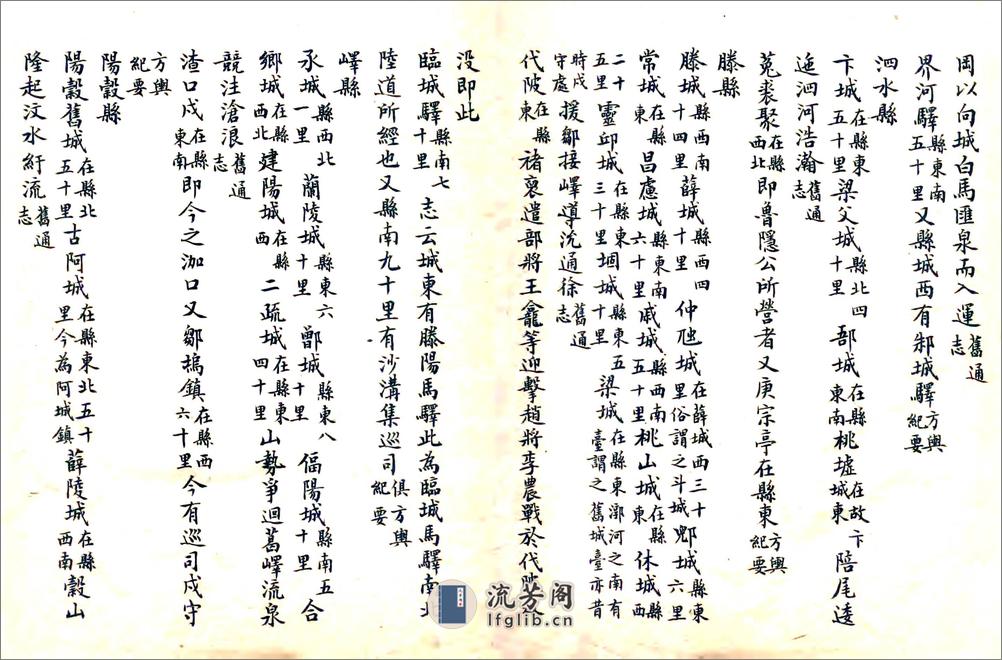 岡以向城白馬匯泉而入運舊通志
界河驛在縣東南五十里又縣城西有邾城驛方輿紀要
泗水縣
卞城在縣東五十里梁父城縣北四十里郚城在縣東南桃墟在故卞城東陪尾逶
迤泗河浩瀚舊通志
菟裘聚在縣西北即魯隱公所營者又庚宗亭在縣東方輿紀要
滕縣
滕城縣西南十四里薛城縣西四十里仲虺城在薛城西三十里俗謂之斗城郳城縣東六里
常城在縣東昌慮城縣東南六十里戚城縣西南五十里桃山城在縣東休城縣西
二十五里靈邱城在縣東三十里堌城縣東五十里梁城在縣東漷河之南有臺謂之舊城臺亦昔
時戍守處援鄒接嶧導沇通徐舊通志
代陂在縣東褚裒遣部將王龕等迎擊趙將李農戰於代陂
没即此
臨城驛縣南七十里志云城東有滕陽馬驛此為臨城馬驛南北
陸道所經也又縣南九十里有沙溝集巡司俱方輿紀要
嶧縣
承城縣西北一里蘭陵城縣東六十里鄫城縣東八十里偪陽城縣南五十里合
鄉城在縣西北建陽城在縣西二疏城在縣東四十里山勢爭迴葛嶧流泉
競注滄浪舊通志
渣口戍在縣東南即今之泇口又鄒塢鎮在縣西六十里今有巡司戍守
方輿紀要
陽穀縣
陽穀舊城在縣北五十里古阿城在縣東北五十里今為阿城鎮薛陵城在縣西南穀山
隆起汶水紆流舊通志
流芳阁
lfglib.cn